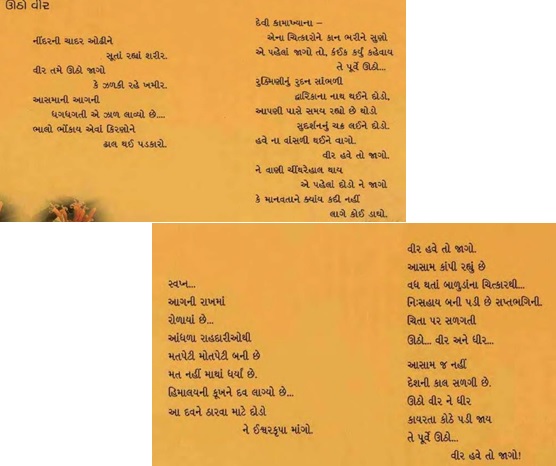 ઊઠો વીર
નીંદરની ચાદર ઓઢીને
સૂતાં રહ્યાં શરીર.
વીર તમે ઊઠો જાગો
કે ઝળકી રહે ખમીર.
આસમાની આગની
ધગધગતી એ ઝાળ લાવ્યો છે....
ભાલો ભોંકાય એવાં કિરણોને
ઢાલ થઈ પડકારો.
દેવી કામાખ્યાના –
એના ચિત્કારોને કાન ભરીને સુણો
એ પહેલાં જાગો તો, કંઈક કર્યું કહેવાય
તે પૂર્વે ઊઠો...
રુક્મિણીનું રુદન સાંભળી
દ્વારિકાના નાથ થઈને દોડો,
આપણી પાસે સમય રહ્યો છે થોડો
સુદર્શનનું ચક્ર લઈને દોડો.
હવે ના વાંસળી થઈને વાગો.
વીર હવે તો જાગો.
ને વાણી ચીંથરેહાલ થાય
એ પહેલાં દોડો ને જાગો
કે માનવતાને ક્યાંય કદી નહીં
લાગે કોઈ ડાઘો.
સ્વપ્ન...
આગની રાખમાં
રોળાયાં છે...
આંધળા રાહદારીઓથી
મતપેટી મોતપેટી બની છે
મત નહીં માથાં ધર્યાં છે.
હિમાલયની કૂખને દવ લાગ્યો છે...
આ દવને ઠારવા માટે દોડો
ને ઈશ્વરકૃપા માંગો.
વીર હવે તો જાગો.
આસામ કાંપી રહ્યું છે
વધ થતાં બાળુડાંના ચિત્કારથી...
નિઃસહાય બની પડી છે સપ્તભગિની.
ચિતા પર સળગતી
ઊઠો... વીર અને ધીર...
આસામ જ નહીં
દેશની કાલ સળગી છે.
ઊઠો વીર ને ધીર
કાયરતા કોઠે પડી જાય
તે પૂર્વે ઊઠો...
વીર હવે તો જાગો!